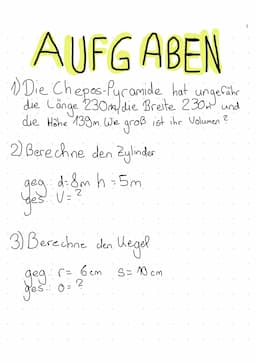 AUFGABEN
1) Die Chepos-Pyramide hat ungefähr
die Länge 230m, die Breite 230m und
die Höhe 139m. Wie groß ist ihr Volumen?
2) Berechne den Zylinder
geg: d=8m h=5m
ges.: V=?
3) Berechne den Kegel
geg: r= 6cm s=10cm
ges.: O=?